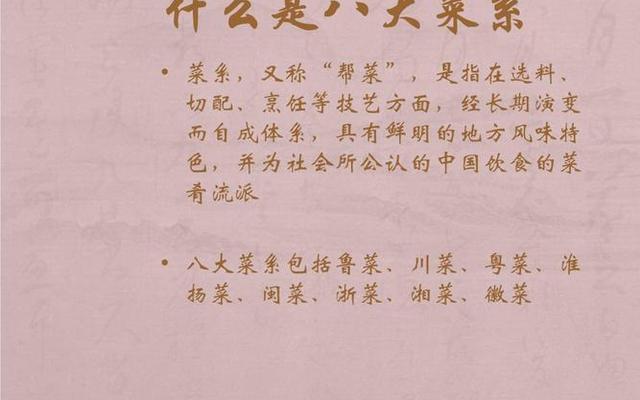 什么是八大菜系
• 菜系，又称“帮菜”，是指在选料、
切配、烹饪等技艺方面，经长期演变
而自成体系，具有鲜明的地方风味特
色，并为社会所公认的中国饮食的菜
肴流派
• 八大菜系包括鲁菜、川菜、粤菜、淮
扬菜、闽菜、浙菜、湘菜、徽菜